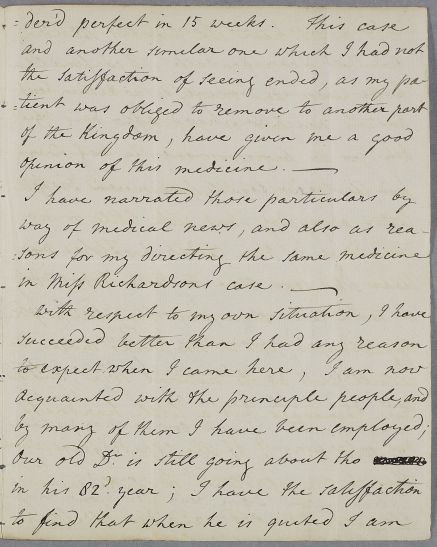 =der'd perfect in 15 weeks. This case
and another similar one which I had not
the satisfaction of seeing ended, as my pa=
=tient was obliged to remove to another part
of the Kingdom, have given me a good
opinion of this medicine. —
I have narrated those particulars by
way of medical news, and also as rea=
=sons for my directing the same medicine
in Miss Richardsons case. —
With respect to my own situation, I have
succeeded better than I had any reason
to expect when I came here, I am now
acquainted with the principle people, and
by many of them I have been employed;
Our old Dr. is still going about tho
in his 82d. year; I have the satisfaction
to find that when he is quited I am